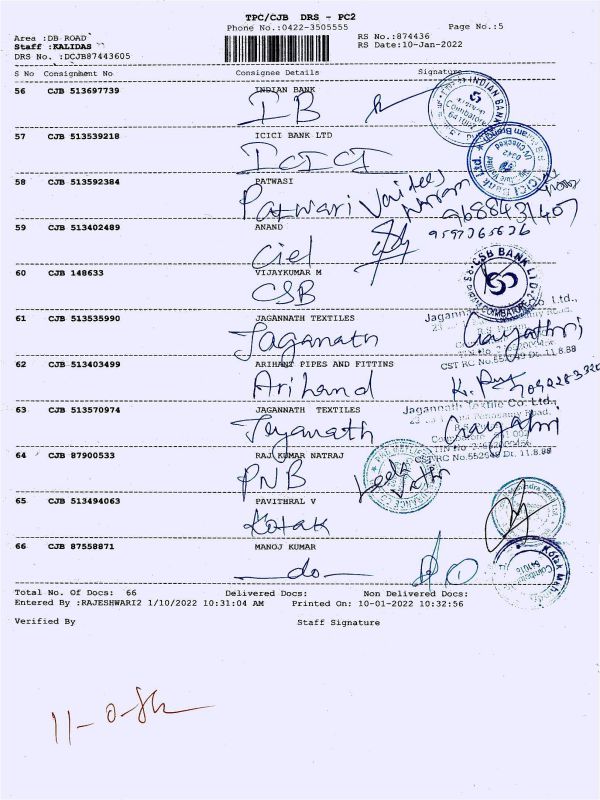 TPC/CJB DRS - PC2
Phone No.:0422-3505555
Page No.:5
Area :DB ROAD
Staff :KALIDAS
DRS No. :DCJB87443605
RS No.:874436
RS Date:10-Jan-2022
S No Consignment No Consignee Details Signature
56 CJB 513697739 INDIAN BANK
IB
INDIAN BANK
Coimbatore
57 CJB 513539218 ICICI BANK LTD
ICICI
ICICI Bank Ltd
58 CJB 513592384 PATWASI
Patwari
9688431407
59 CJB 513402489 ANAND
Ciel
9597365636
60 CJB 148633 VIJAYKUMAR M
CSB
CSB BANK LTD
COIMBATORE
61 CJB 513535990 JAGANNATH TEXTILES
Jaganath
Gayathri
CST RC No.552949 Dt. 11.8.88
62 CJB 513403499 ARIHANT PIPES AND FITTINS
Arihand
63 CJB 513570974 JAGANNATH TEXTILES
Jeyanath
Jagannath Textile Co. Ltd.,
Gayathri
CST RC No.552949 Dt. 11.8.88
64 CJB 87900533 RAJ KUMAR NATRAJ
PNB
65 CJB 513494063 PAVITHRAL V
Kotak
66 CJB 87558871 MANOJ KUMAR
-do-
Kotak Mah
Total No. Of Docs: 66 Delivered Docs: Non Delivered Docs:
Entered By :RAJESHWARI2 1/10/2022 10:31:04 AM Printed On: 10-01-2022 10:32:56
Verified By Staff Signature